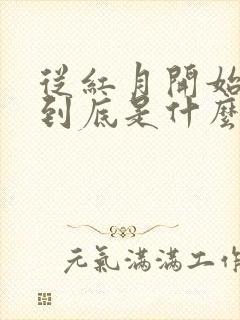 從紅月開始
到底是什麼
元氣滿滿工作